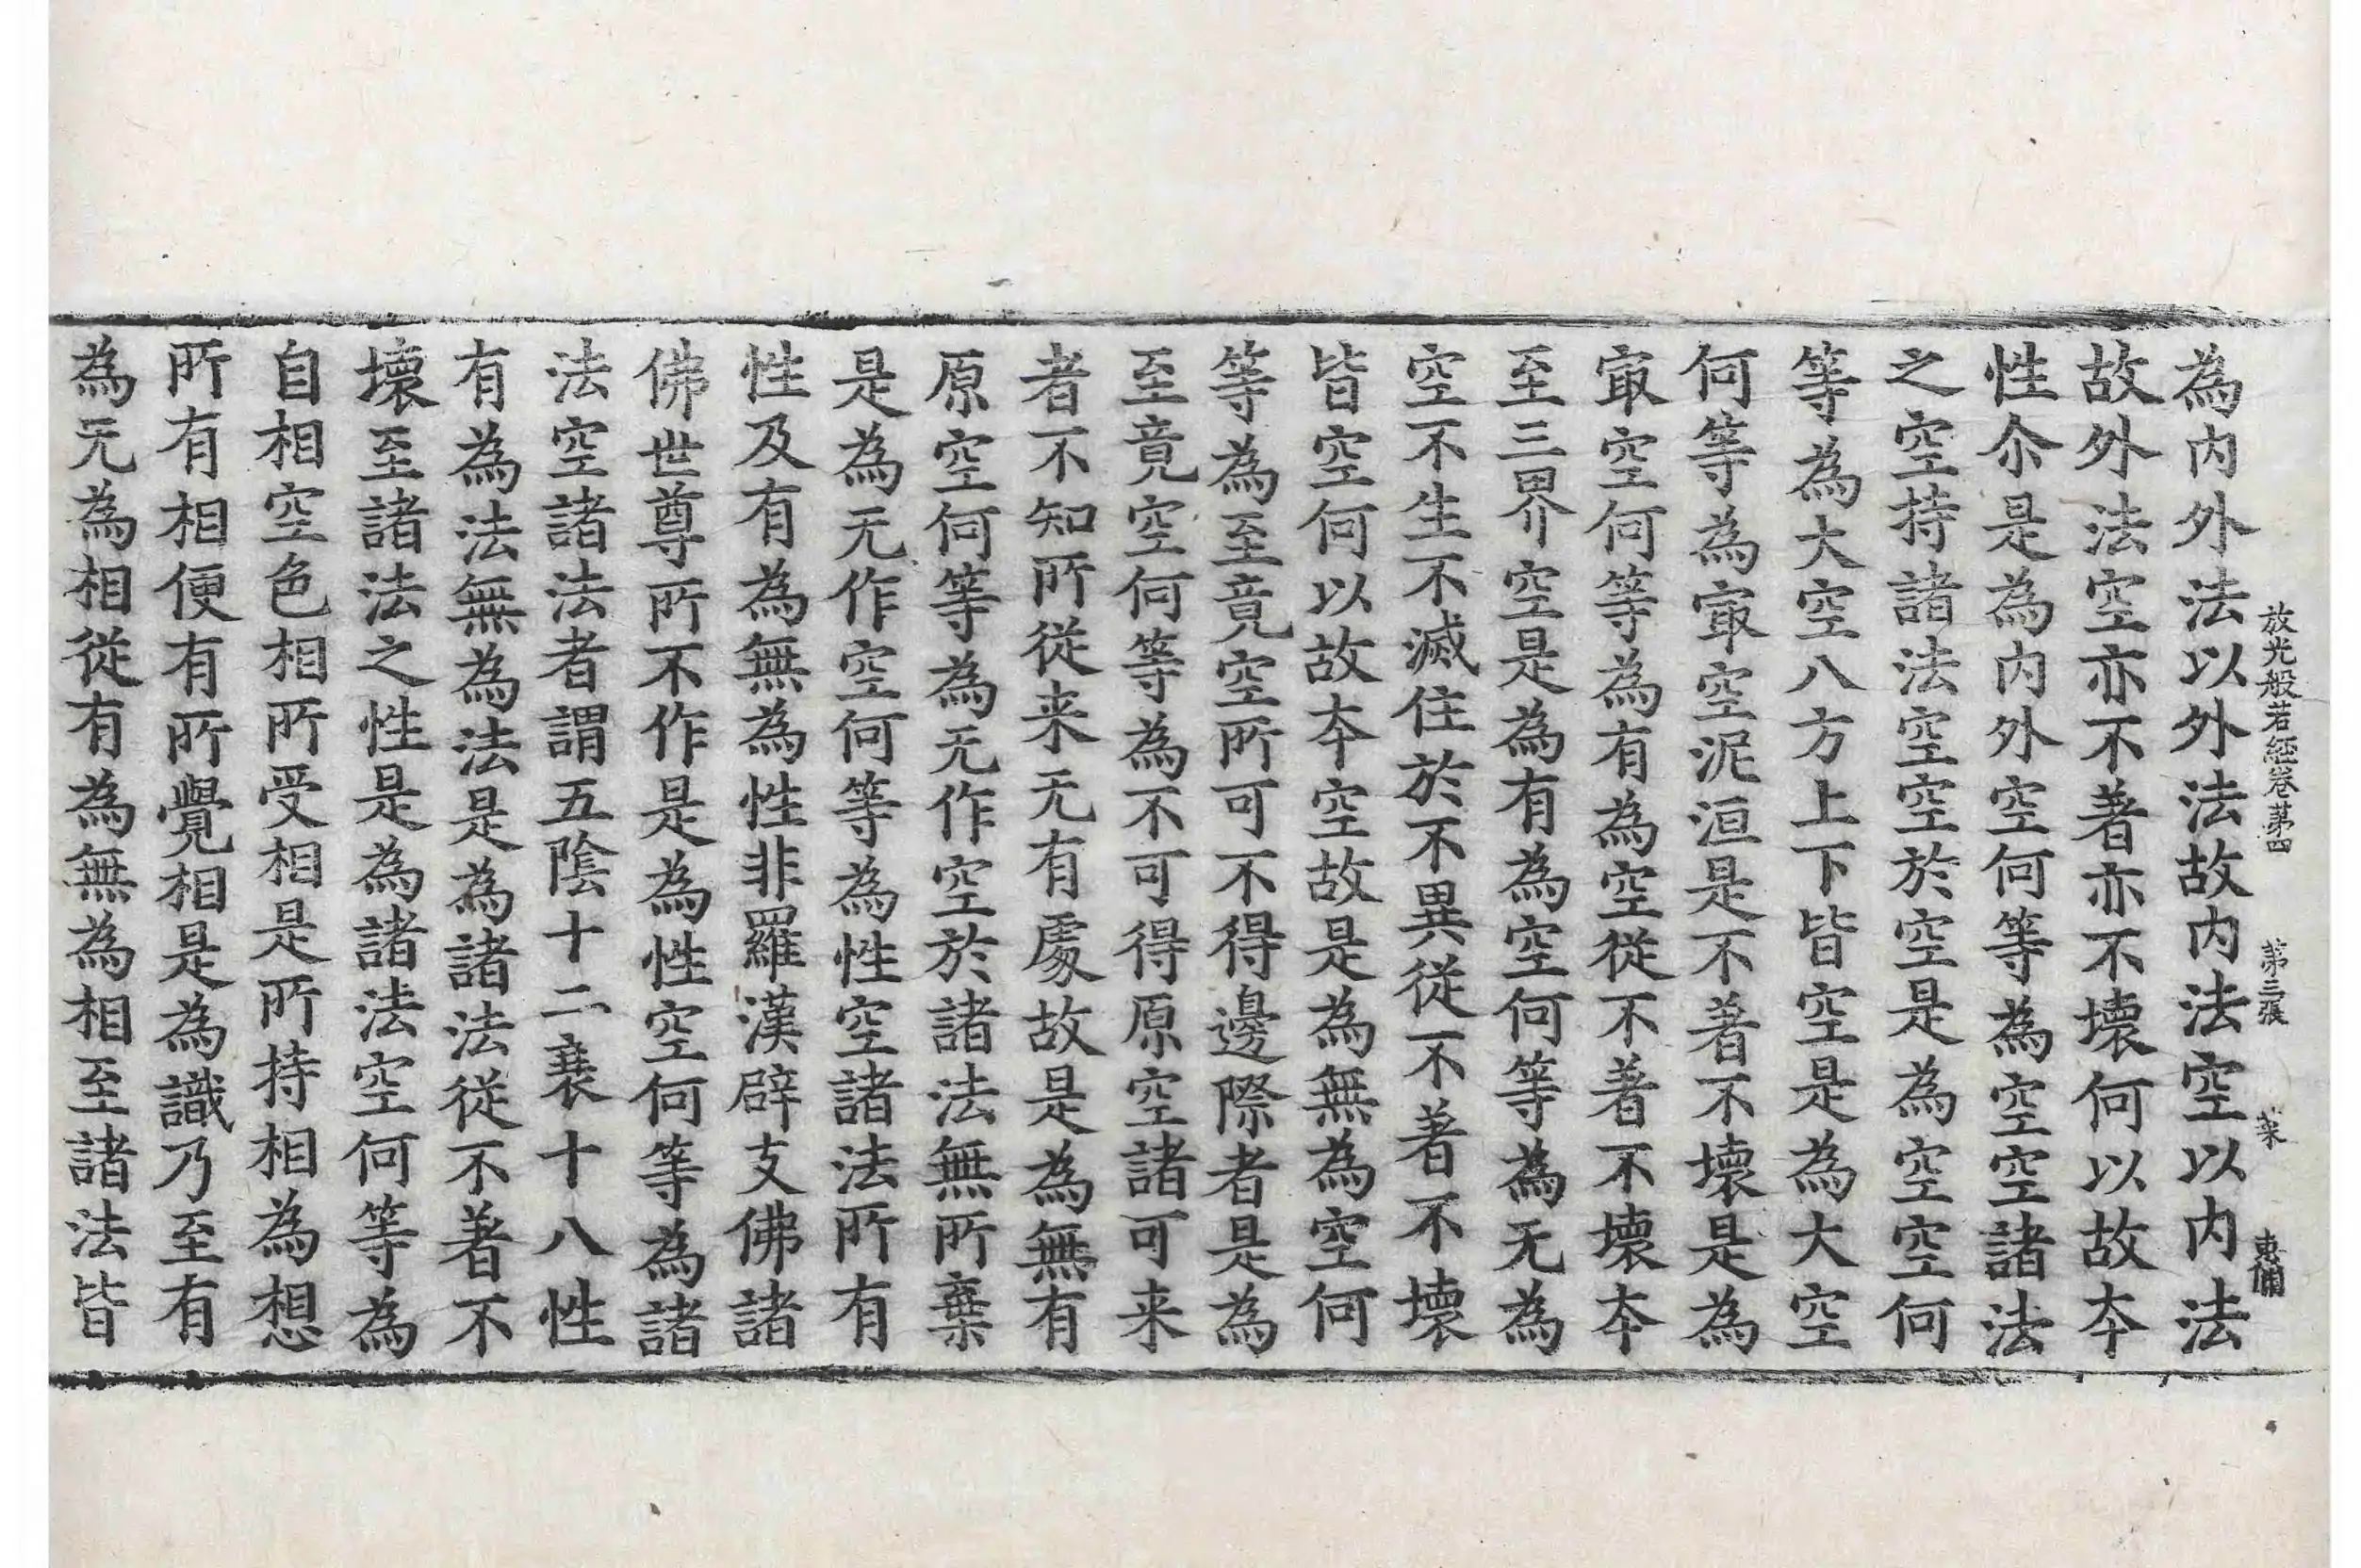 放光般若經卷第四 第三張 菜
為内外法以外法故内法空以内法
故外法空亦不著亦不壞何以故夲
性尒是為内外空何等為空空諸法
之空持諸法空空於空是為空空何
等為大空八方上下皆空是為大空
何等為㝡空泥洹是不著不壞是為
㝡空何等為有為空從不著不壞夲
至三界空是為有為空何等為无為
空不生不滅住於不異從不著不壞
皆空何以故夲空故是為無為空何
等為至竟空所可不得邊際者是為
至竟空何等為不可得原空諸可来
者不知所從来无有處故是為無有
原空何等為无作空於諸法無所棄
是為无作空何等為性空諸法所有
性及有為無為性非羅漢辟支佛諸
佛世尊所不作是為性空何等為諸
法空諸法者謂五陰十二衰十八性
有為法無為法是為諸法從不著不
壞至諸法之性是為諸法空何等為
自相空色相所受相是所持相為想
所有相便有所覺相是為識乃至有
為无為相從有為無為相至諸法皆